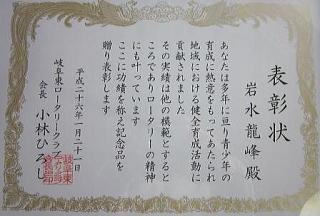 表彰状
岩水龍峰 殿
あなたは多年に亘り青少年の
育成に熱意をもってあたられ
地域における健全育成活動に
貢献されました
その実績は他の模範とすると
ころでありロータリーの精神
にも叶っています
ここに功績を称え記念品を
贈り表彰します
平成二十六年一月二十一日
岐阜東ロータリークラブ
会長 小林ひろし